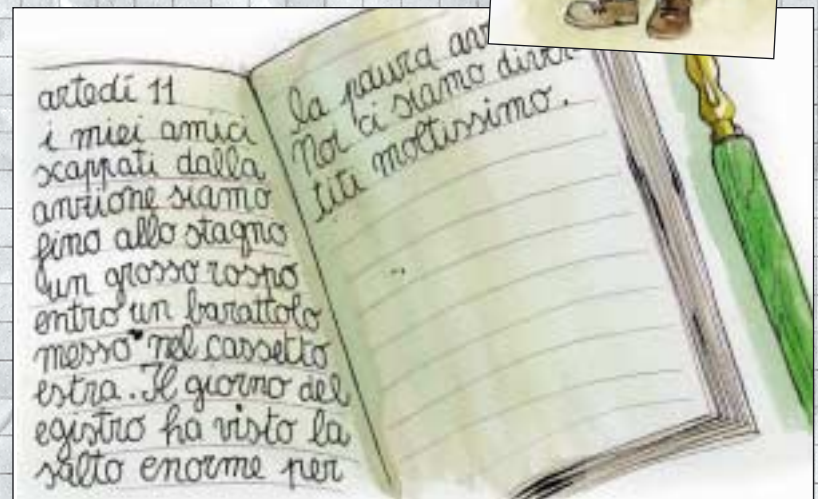 artedí 11
i miei amici
scappati dalla
anzione siamo
fino allo stagno
un grosso rospo
entro un barattolo
messo nel cassetto
estra. Il giorno del
egistro ha visto la
salto enorme per
la paura avr
Noi ci siamo diver-
titi moltissimo.